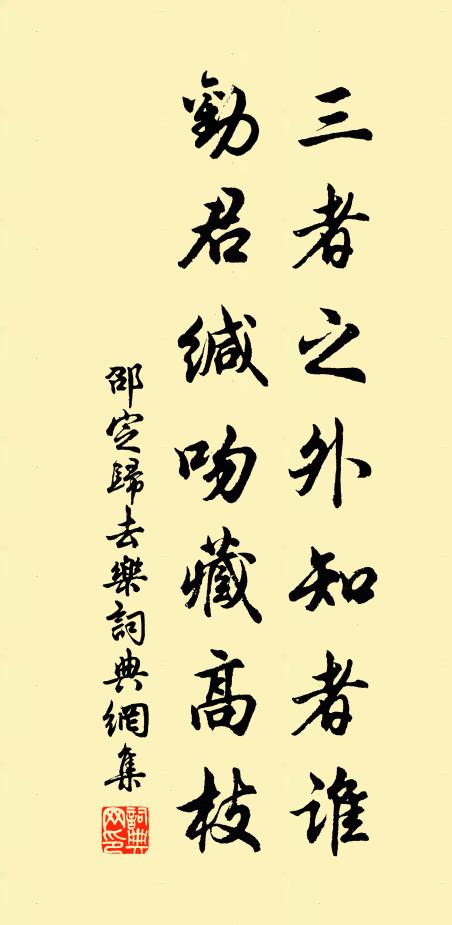 三者之外知者谁
勸君缄吻藏高枝
邵定歸去樂詞典網集
詞典网印